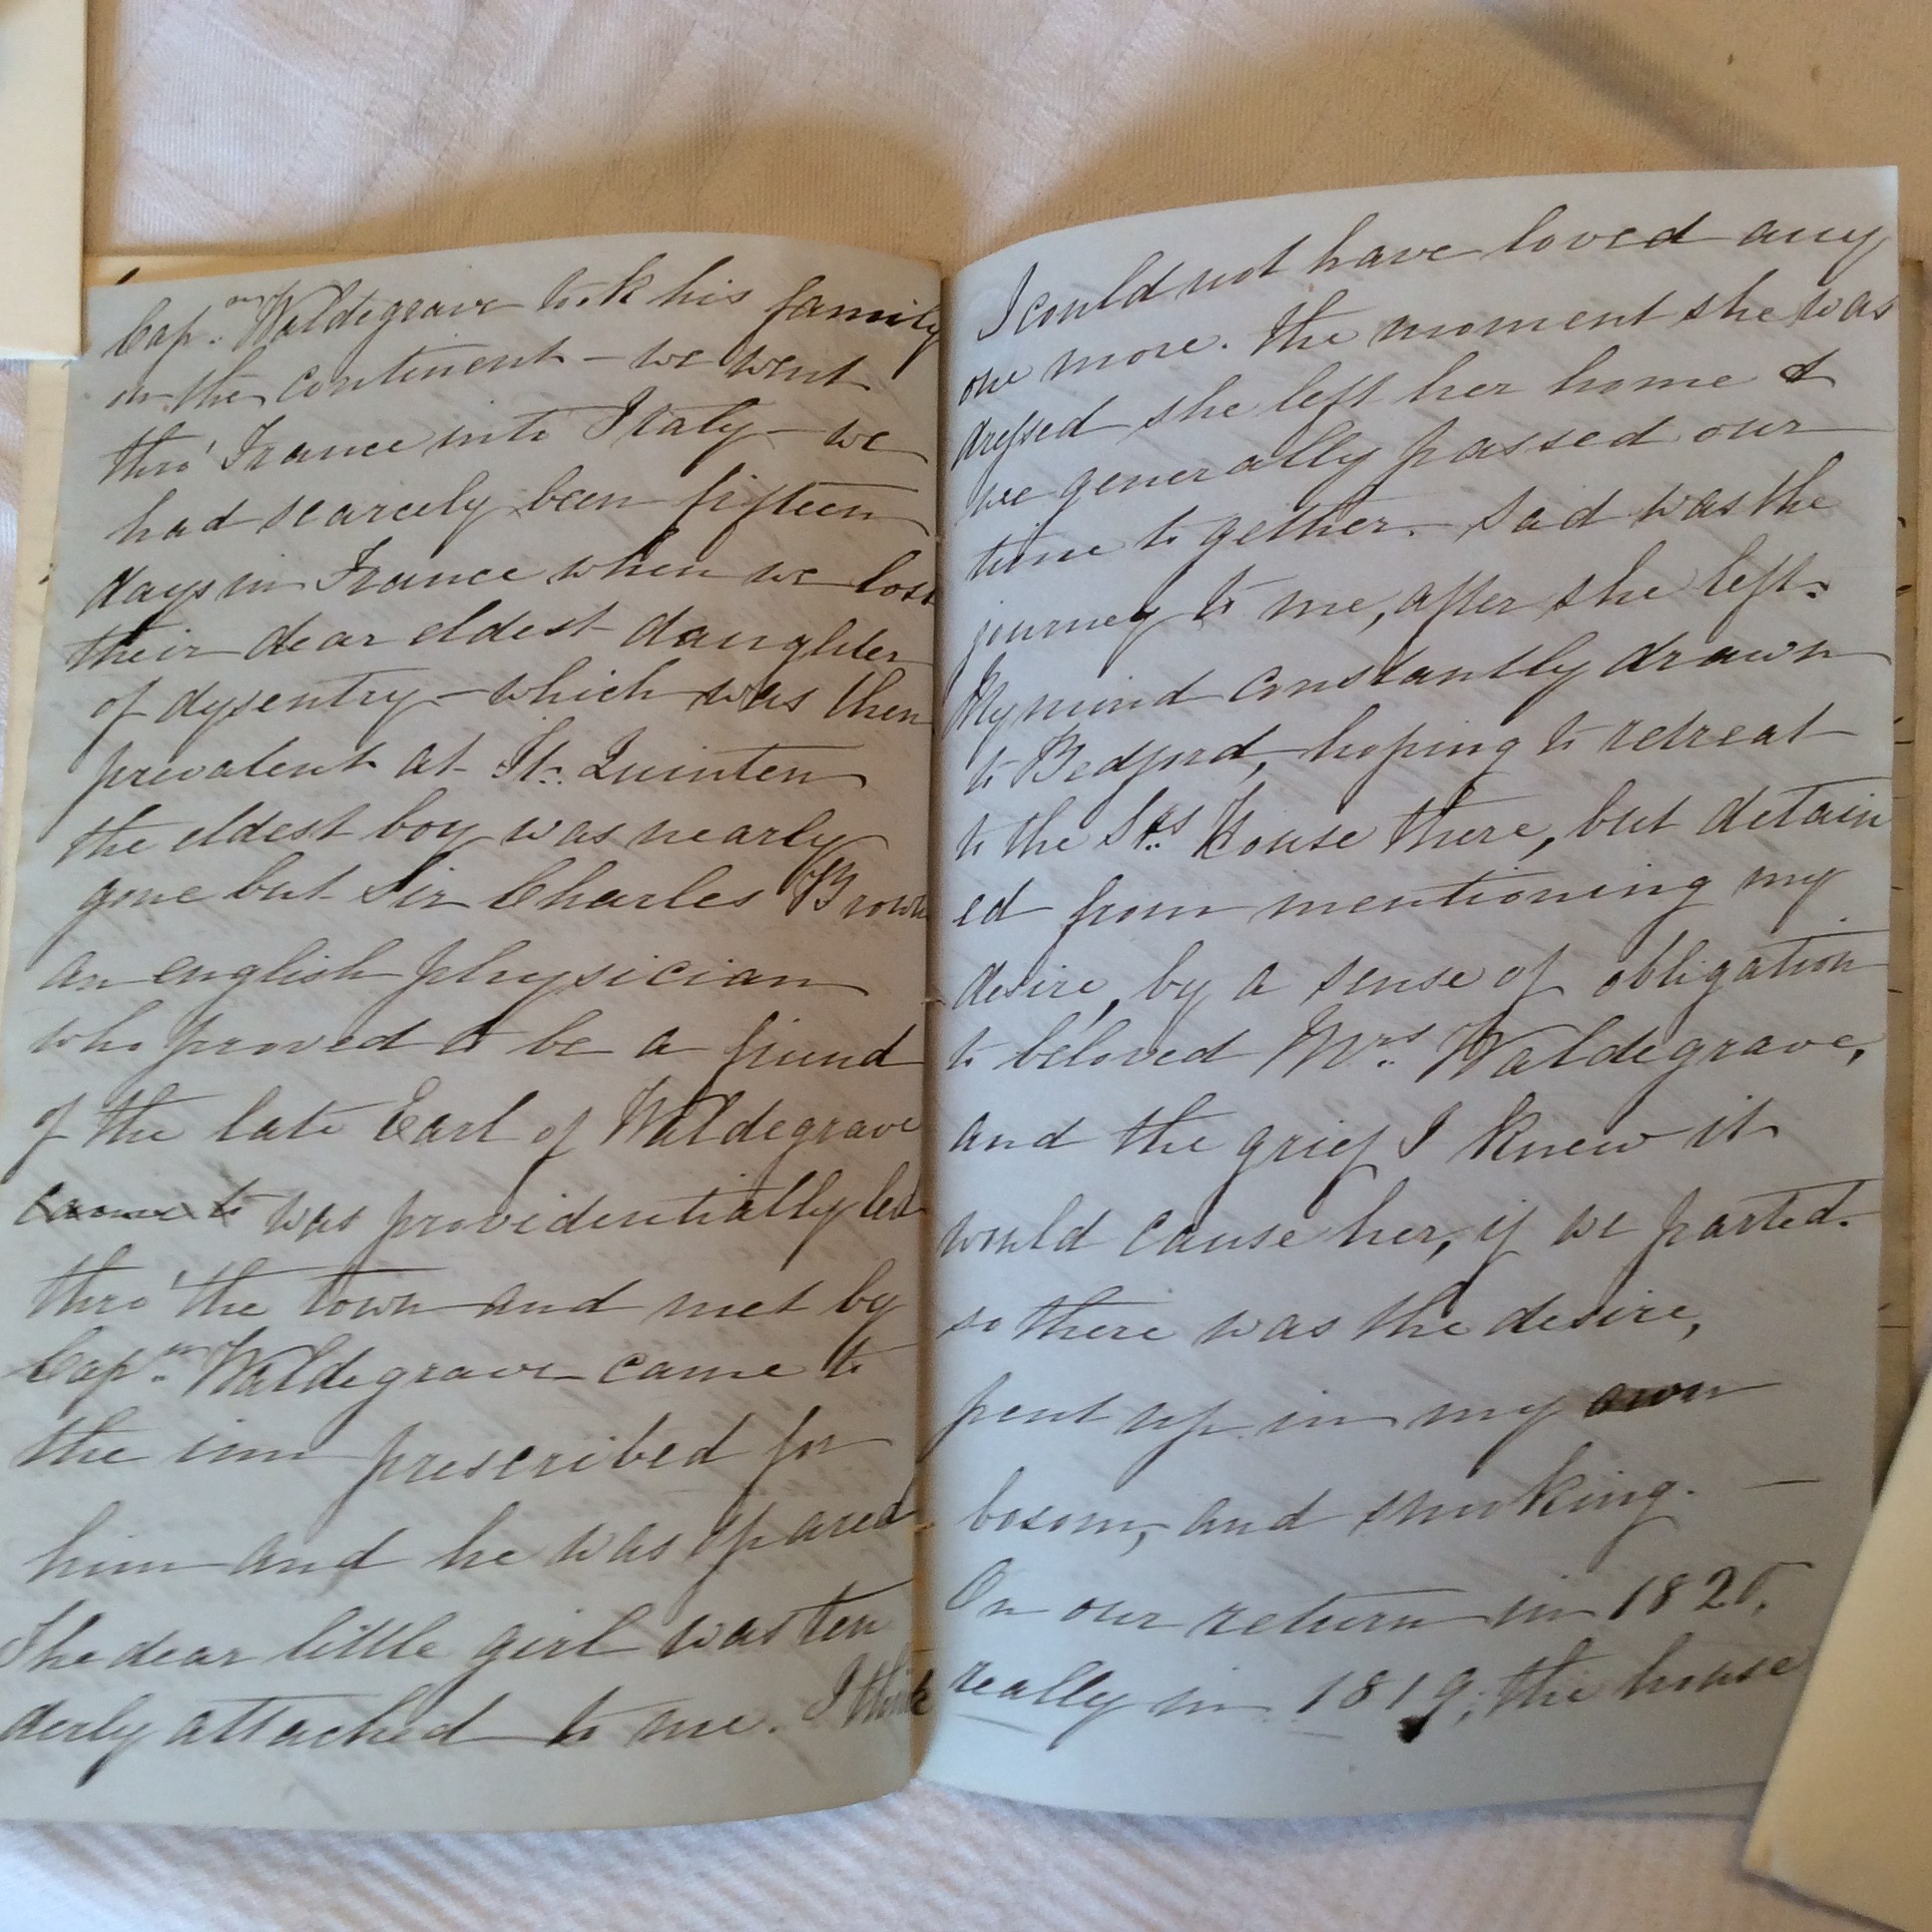 Capⁿ. Waldegrave took his family
on the continent – we went
thro' France into Italy – we
had scarcely been fifteen
days in France when we lost
their dear eldest daughter
of dysentry – which was then
prevalent at St. Quinten
the eldest boy was nearly
gone but Sir Charles Brown
an english physician
who proved to be a friend
of the late Earl of Waldegrave
came to was providentially led
thro' the town and met by
Capⁿ. Waldegrave came to
the inn prescribed for
him and he was spared
The dear little girl was ten
derly attached to me. I think
I could not have loved any
one more. the moment she was
dressed she left her home &
we generally passed our
time together. Sad was the
journey to me, after she left.
My mind constantly drawn
to Bedford, hoping to retreat
to the Srs. House there, but detain
ed from mentioning my
desire, by a sense of obligation
to beloved Mrs. Waldegrave,
and the grief I knew it
would cause her, if we parted.
so there was the desire,
pent up in my own
bosom, and smoking. –
On our return in 1820,
really in 1819, the house